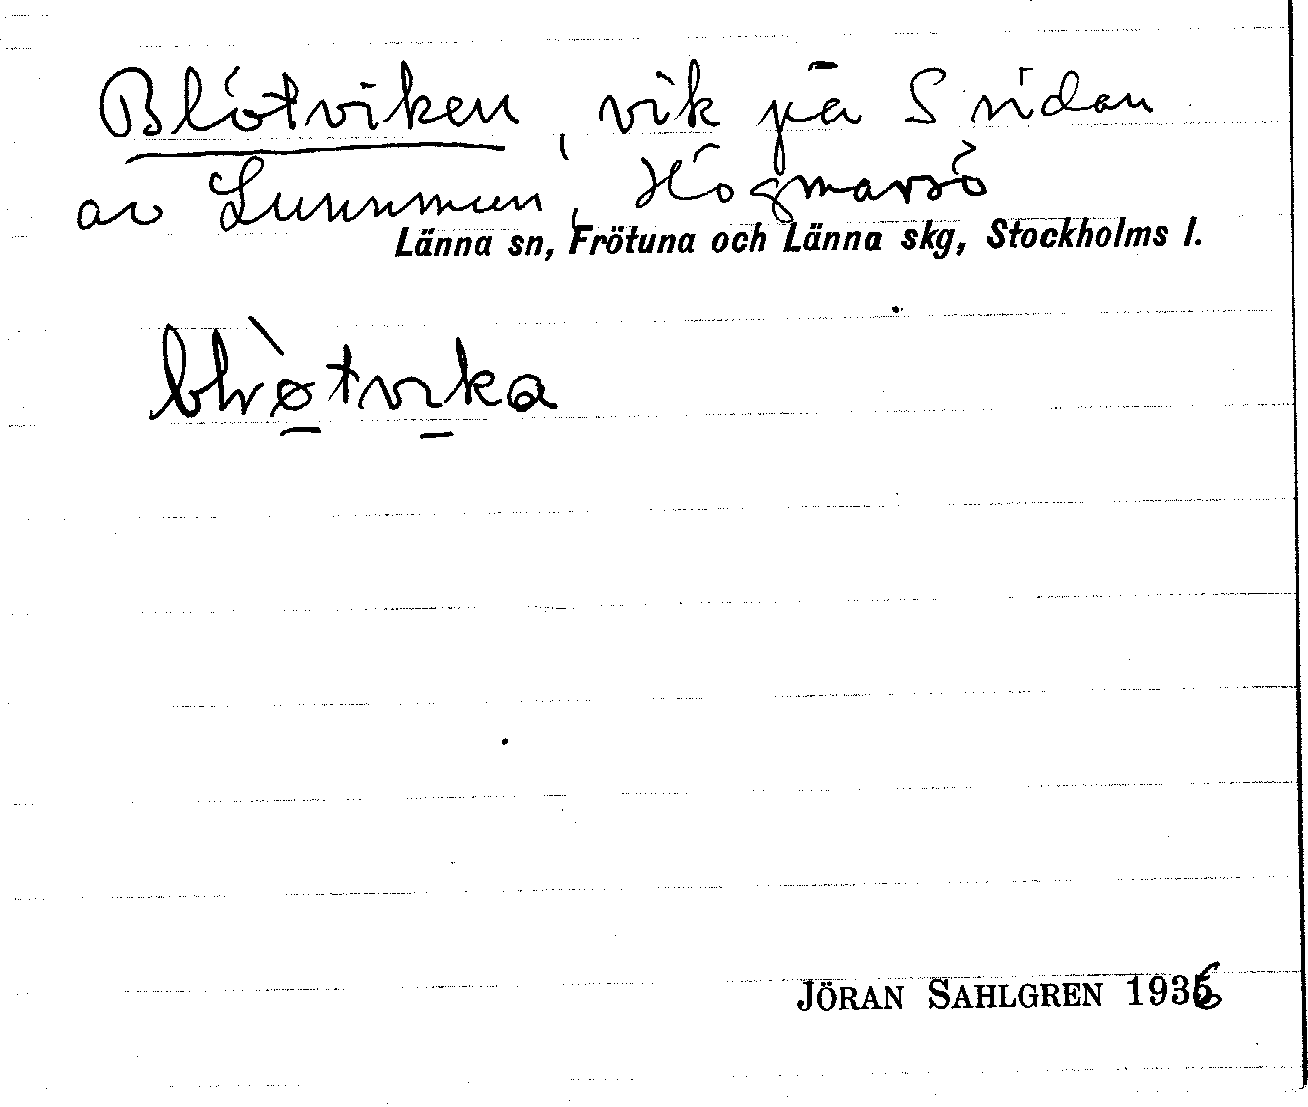 Blötviken, vik på S sidan
av Lunnmun, Högmarsö
Länna sn, Frötuna och Länna skg, Stockholms l.
blø̀tvika
JÖRAN SAHLGREN 1936